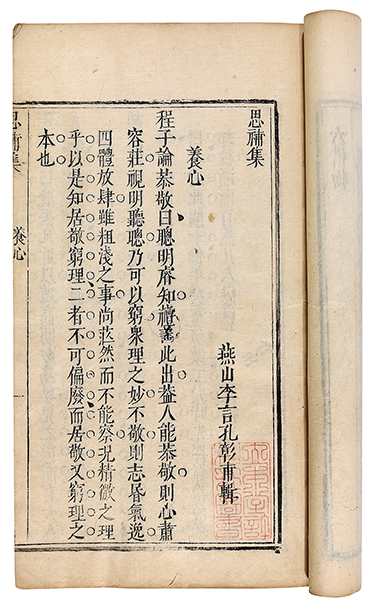 思補集
燕山李言孔彰甫輯
養心
程子論恭敬曰聰明睿知皆繇此出葢人能恭敬則心肅
容莊視明聽聰乃可以窮衆理之妙不敬則志昏氣逸
四體放肆雖粗淺之事尚茫然而不能察况精微之理
乎以是知居敬窮理二者不可偏廢而居敬又窮理之
本也
思補集
養心